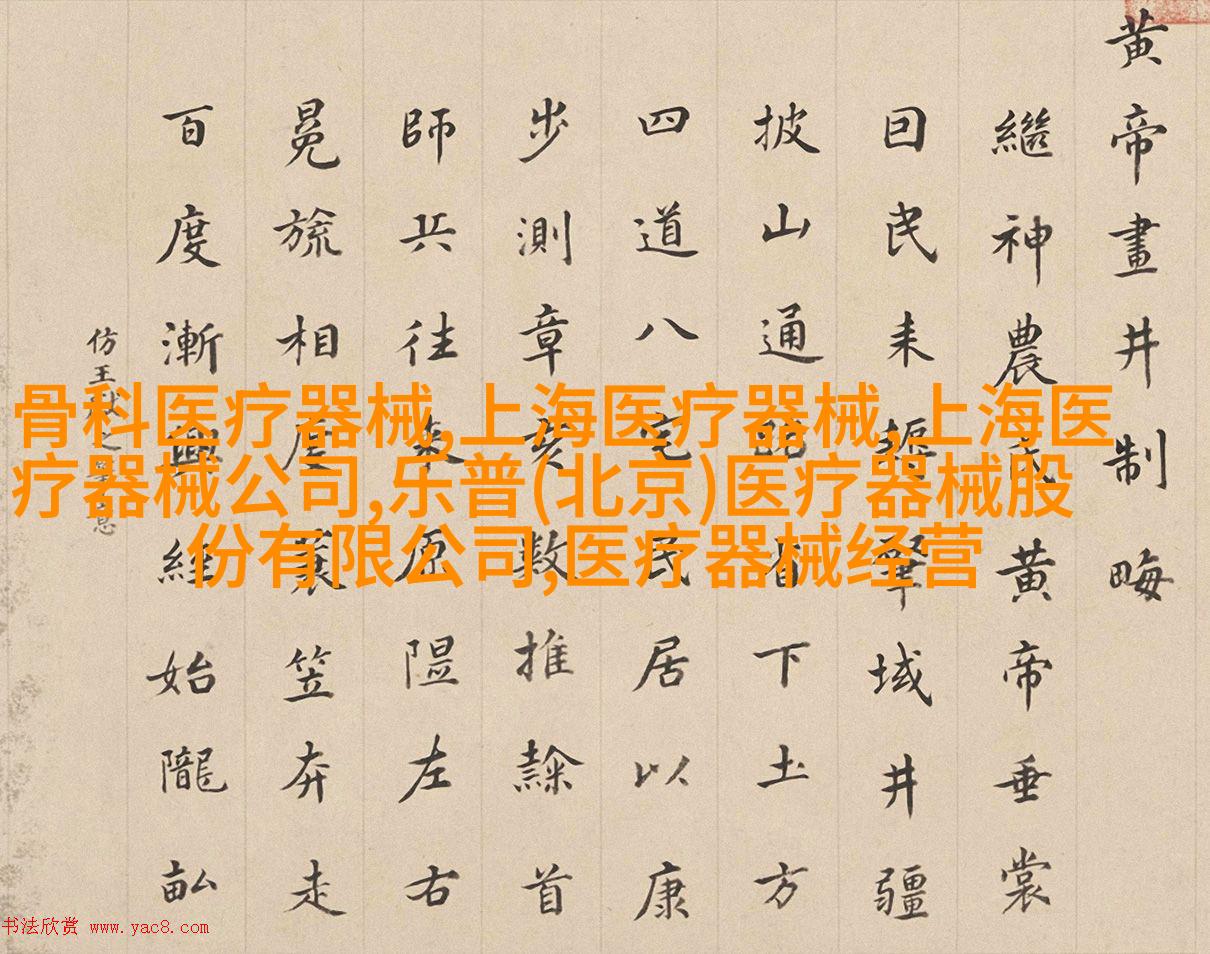 黄帝畫井制畮
繼神農氏黄帝垂裳
囙民耒肈域井疆
披山通省下土方
四道八宅民居以康
步測章亥数推隸首
師兵往來原隰左右
冕旒相度蓑笠奔走
百度漸興經始隴畝
仿王献之筆意
骨科医疗器械,上海医疗器械,上海医
疗器械公司,乐普(北京)医疗器械股
份有限公司,医疗器械经营
书法欣赏 www.yac8.com